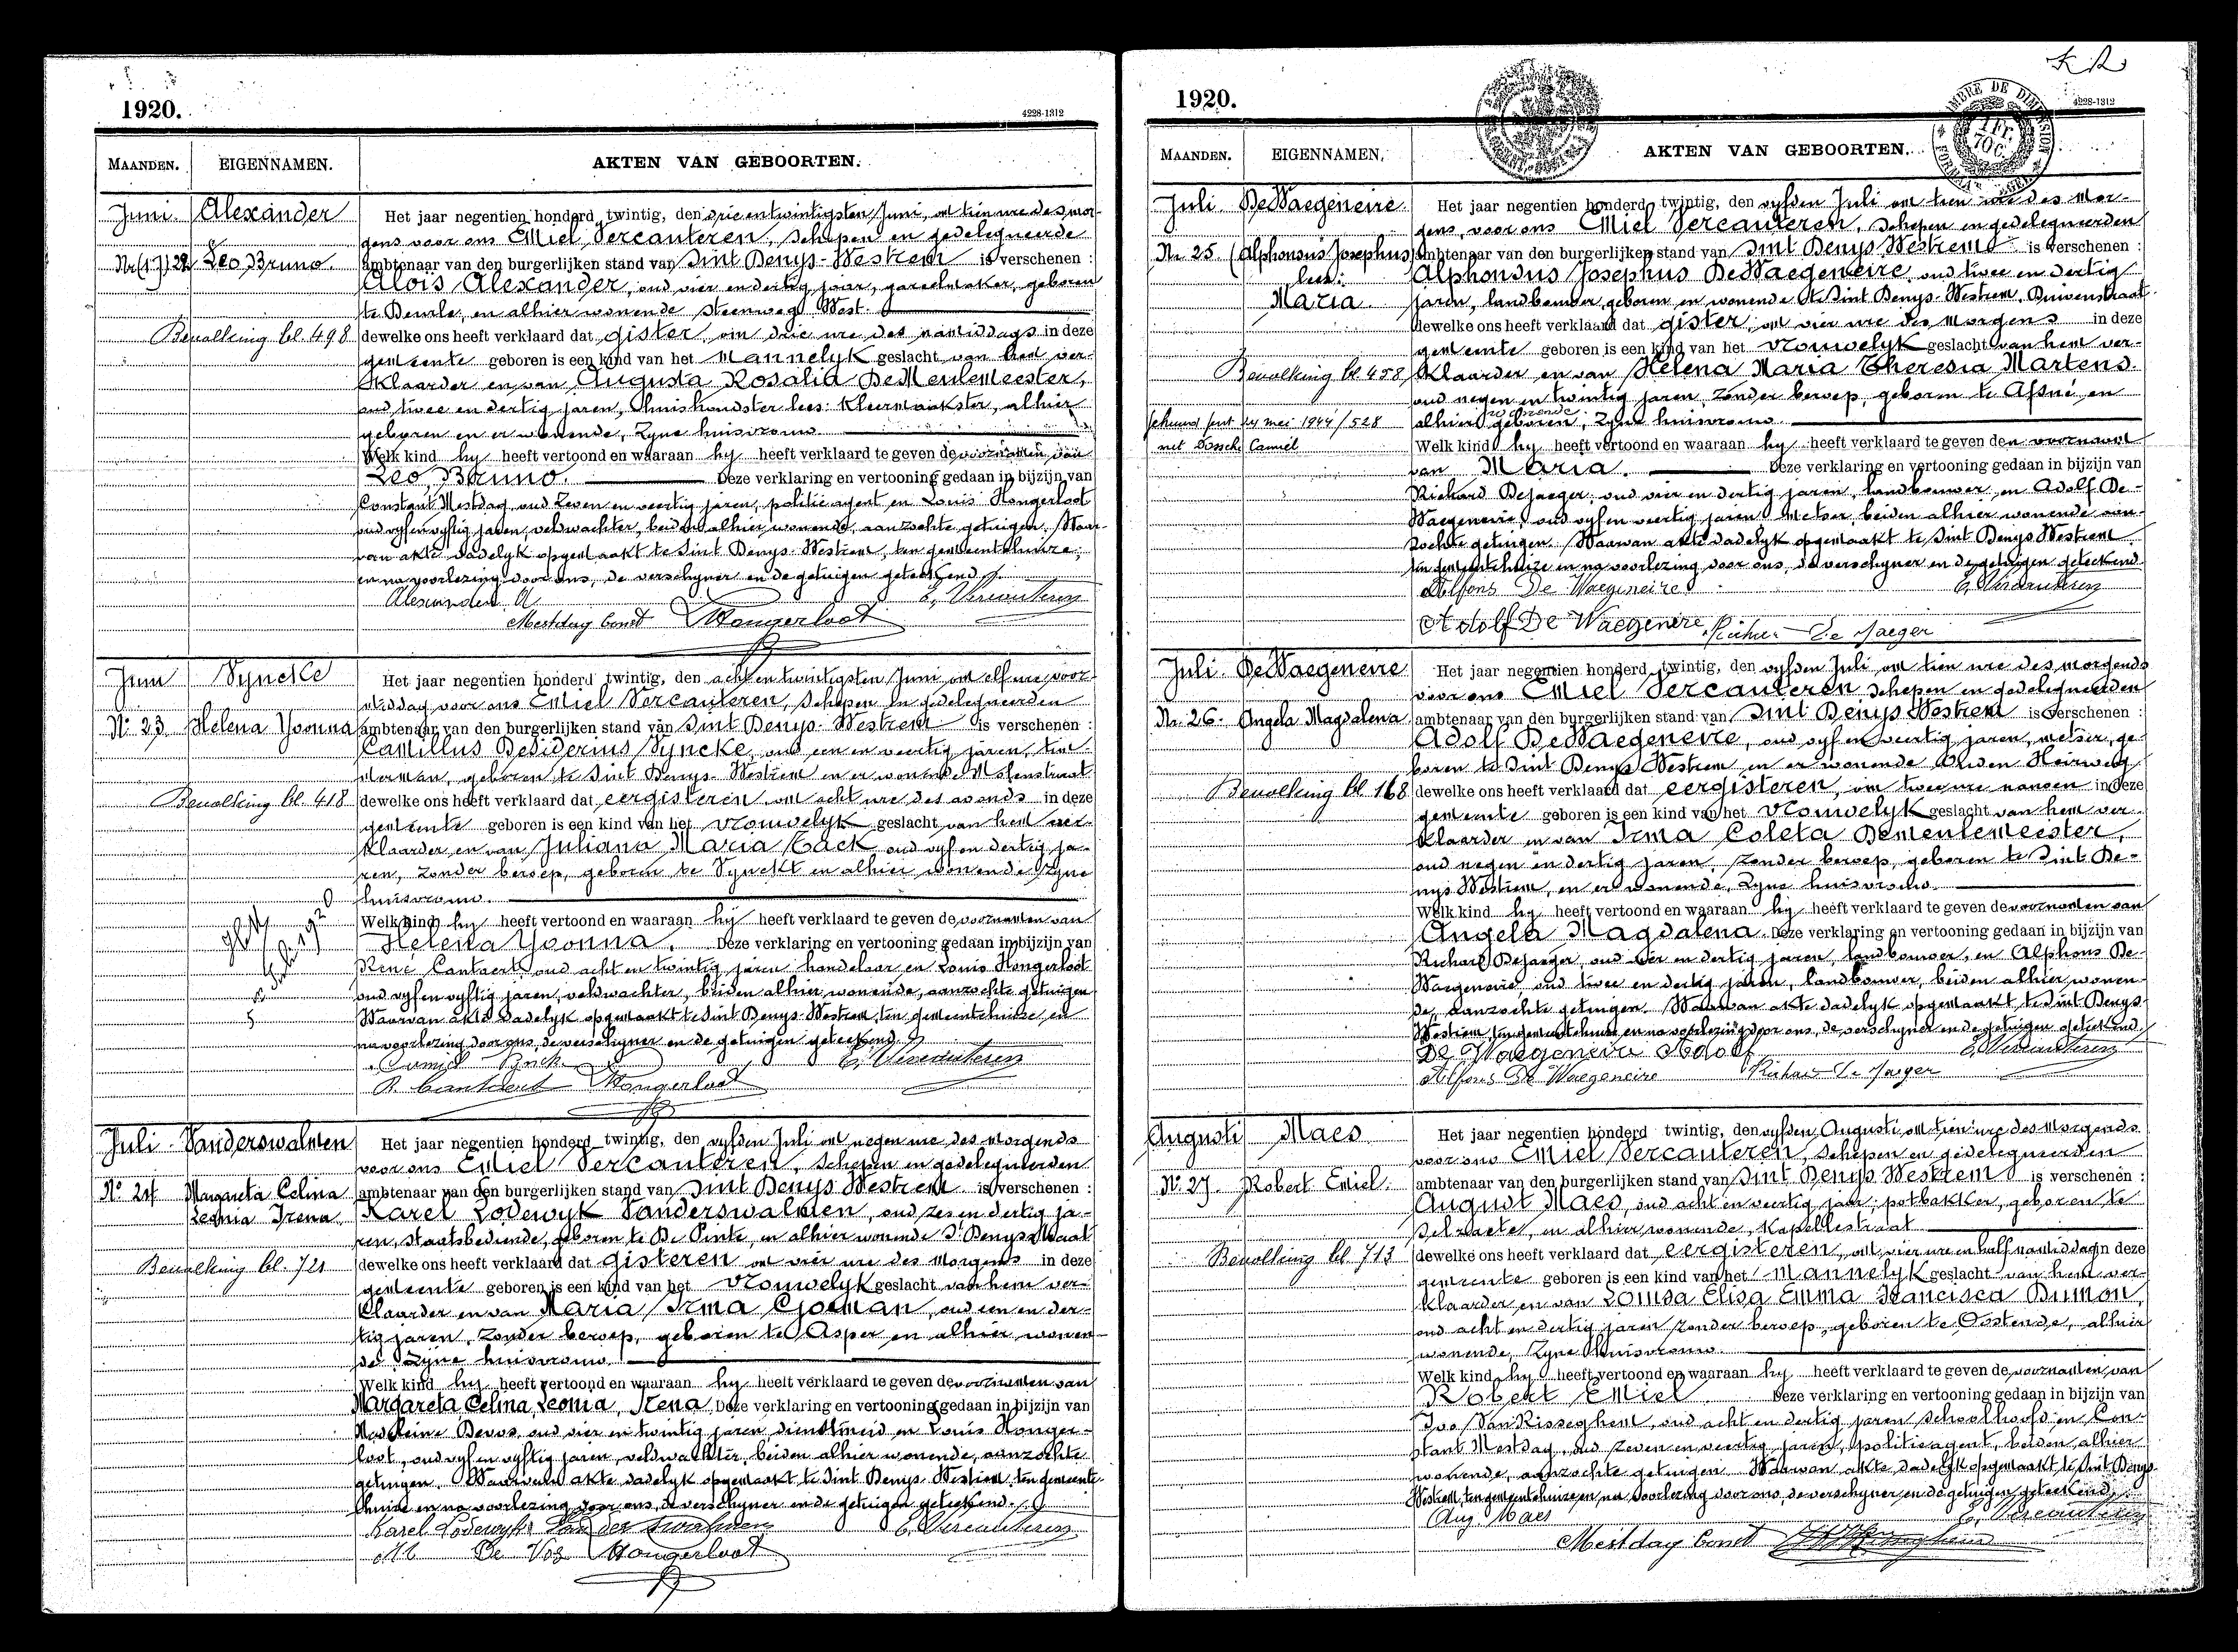 1920.
4228-1312
MAANDEN.
EIGENNAMEN.
AKTEN VAN GEBOORTEN.
Juni
Alexander
Het jaar negentien honderd twintig, den drie en twintigsten Juni, om tien ure des mor-
gens voor ons Emiel Vercauteren, schepen en gedelegueerde
Leo Bruno.
ambtenaar van den burgerlijken stand van Sint Denys-Westrem is verschenen :
Aloïs Alexander, oud vier en dertig jaar, gareelmaker, geboren
te Deurle, en alhier wonende Steenweg West.
Bevolking bl. 498
dewelke ons heeft verklaard dat gister, om drie ure des namiddags in deze
gemeente geboren is een kind van het mannelyk geslacht van hem ver-
klaarder en van Augusta Rosalia DeMeulemeester,
oud twee en dertig jaren, huishoudster lees: Kleermaakster, alhier
geboren en er wonende, zyne huisvrouw
Welk kind hy heeft vertoond en waaraan hy heeft verklaard te geven de voornamen van
Leo, Bruno. Deze verklaring en vertooning gedaan in bijzijn van
Constant Mestdag, oud zeven en veertig jaren, politie agent en Louis Hongerloot
oud vyf en vyftig jaren, veldwachter, beiden alhier wonende, aanzochte getuigen. Waar-
van akte dadelyk opgemaakt te Sint Denys-Westrem, ten gemeentehuize,
en na voorlezing door ons, de verschyner en de getuigen geteekend.
Alexander A
E. Vercauteren
Mestdag Const Hongerloot
Juni
Syncke
Het jaar negentien honderd twintig, den acht en twintigsten Juni, om elf ure voor-
middag voor ons Emiel Vercauteren, schepen en gedelegueerden
No 23
Helena Yvonna
ambtenaar van den burgerlijken stand van Sint Denys-Westrem is verschenen :
Camillus Desiderius Syncke, oud een en veertig jaren, tim-
merman, geboren te Sint Denys-Westrem en er wonende Molenstraat
Bevolking bl. 418
dewelke ons heeft verklaard dat eergisteren om acht ure des avonds in deze
gemeente geboren is een kind van het vrouwelyk geslacht van hem ver-
klaarder en van Juliana Maria Cack oud vyf en dertig ja-
ren, zonder beroep, geboren te Synckt en alhier wonende zyne
huisvrouw.
Welk kind hy heeft vertoond en waaraan hy heeft verklaard te geven de voornamen van
Helena Yvonna. Deze verklaring en vertooning gedaan in bijzijn van
René Cantaert, oud acht en twintig jaren handelaar en Louis Hongerloot
oud vyf en vyftig jaren, veldwachter, beiden alhier wonende, aanzochte getuigen
Waarvan akte dadelyk opgemaakt te Sint Denys-Westrem, ten gemeentehuize, en
na voorlezing door ons, de verschyner en de getuigen geteekend
E. Vercauteren
R. Cantaert Hongerloot
Juli
Vanderswalmen
Het jaar negentien honderd twintig, den vyfden Juli om negen ure des morgends
voor ons Emiel Vercauteren, schepen en gedelegueerden
No 24
Margareta Celina
Leonia Irena
ambtenaar van den burgerlijken stand van Sint Denys Westrem is verschenen :
Karel Lodewyk Vanderswalmen, oud zes en dertig ja-
ren, staatsbediende, geboren te De Pinte, en alhier wonende
Bevolking bl. 721
dewelke ons heeft verklaard dat gisteren om vier ure des Morgens in deze
gemeente geboren is een kind van het vrouwelyk geslacht van hem ver-
klaarder en van Maria Irma Cjoeman, oud een en der-
tig jaren, zonder beroep, geboren te Asper en alhier wonen-
de zyne huisvrouw
Welk kind hy heeft vertoond en waaraan hy heeft verklaard te geven de voornamen van
Margareta, Celina, Leonia, Irena. Deze verklaring en vertooning gedaan in bijzijn van
Madeleine Devos, oud vier en twintig jaren, dienstmeid en Louis Honger-
loot, oud vyf en vyftig jaren, veldwachter, beiden alhier wonende, aanzochte
getuigen. Waarvan akte dadelyk opgemaakt te Sint Denys-Westrem, ten gemeente-
huize en na voorlezing door ons, de verschyner en de getuigen geteekend.
Karel Lodewyk Van der Swalmen
E. Vercauteren
M De Vos Hongerloot
1920.
4228-1312
MAANDEN.
EIGENNAMEN.
AKTEN VAN GEBOORTEN.
Juli
DeWaegeneire
Het jaar negentien honderd twintig, den vyfden Juli om tien ure des Mor-
gens, voor ons Emiel Vercauteren, schepen en gedelegueerden
Nr. 25
(Alphonsus Josephus)
lees:
Maria
ambtenaar van den burgerlijken stand van Sint Denys Westrem is verschenen :
Alphonsus Josephus DeWaegeneire, oud twee en dertig
jaren, landbouwer, geboren en wonende te Sint Denys-Westrem, Duivenstraat
dewelke ons heeft verklaard dat gister, om vier ure des Morgens in deze
gemeente geboren is een kind van het vrouwelyk geslacht van hem ver-
Bevolking bl 458
klaarder en van Helena Maria Theresia Martens.
oud negen en twintig jaren, zonder beroep, geboren te Afsné en
4 mei 1944 / 528
met Camiel
alhier wonende, zyne huisvrouw
Welk kind hy heeft vertoond en waaraan hy heeft verklaard te geven den voornaam
van Maria. Deze verklaring en vertooning gedaan in bijzijn van
Richard Dejaeger, oud vier en dertig jaren, landbouwer, en Adolf De-
Waegeneire, oud vyf en veertig jaren Metser, beiden alhier wonende aan-
zochte getuigen. Waarvan akte dadelyk opgemaakt te Sint Denys Westrem
ten gemeentehuize en na voorlezing door ons, de verschyner en de getuigen geteekend
Alfons De Waegeneire
E. Vercauteren
Adolf De Waegeneire De Jaeger
Juli
DeWaegeneire
Het jaar negentien honderd twintig, den vyfden Juli om tien ure des morgends
voor ons Emiel Vercauteren schepen en gedelegueerden
Nr. 26.
Angela Magdalena
ambtenaar van den burgerlijken stand van Sint Denys Westrem is verschenen :
Adolf DeWaegeneire, oud vyf en veertig jaren, metser, ge-
boren te Sint Denys Westrem en er wonende Heirweg
Bevolking bl 168
dewelke ons heeft verklaard dat eergisteren, om twee ure in deze
gemeente geboren is een kind van het vrouwelyk geslacht van hem ver-
klaarder en van Irma Coleta Dementemeester,
oud negen en dertig jaren, zonder beroep, geboren te Sint De-
nys Westrem, en er wonende, zyne huisvrouw
Welk kind hy heeft vertoond en waaraan hy heeft verklaard te geven de voornamen van
Angela Magdalena. Deze verklaring en vertooning gedaan in bijzijn van
Richard Dejaeger, oud vier en dertig jaren, landbouwer, en Alphons De-
Waegeneire oud twee en dertig jaren, landbouwer, beiden alhier wonen-
de, aanzochte getuigen. Waarvan akte dadelyk opgemaakt te Sint Denys-
Westrem, ten gemeentehuize en na voorlezing door ons, de verschyner en de getuigen geteekend.
De Waegeneire Adolf
E. Vercauteren
Alfons De Waegeneire De Jaeger
Augusti
Maes
Het jaar negentien honderd twintig, den vyfden Augusti om tien ure des Morgends
voor ons Emiel Vercauteren schepen en gedelegueerden
No 27.
Robert Emiel.
ambtenaar van den burgerlijken stand van Sint Denys Westrem is verschenen :
August Maes, oud acht en veertig jaar, potbakker, geboren te
Selzaete, en alhier wonende, Kapellestraat
Bevolking bl. 713
dewelke ons heeft verklaard dat eergisteren, om vier ure en half namiddag in deze
gemeente geboren is een kind van het mannelyk geslacht van hem ver-
klaarder en van Louisa Elisa Emma Francisca Bumon,
oud acht en dertig jaren zonder beroep, geboren te Oostende, alhier
wonende, zyne huisvrouw.
Welk kind hy heeft vertoond en waaraan hy heeft verklaard te geven de voornamen van
Robert Emiel. Deze verklaring en vertooning gedaan in bijzijn van
Ivo VanRisseghem, oud acht en dertig jaren schoolhoofd en Con-
stant Mestdag, oud zeven en veertig jaren, politieagent, beiden alhier
wonende, aanzochte getuigen Waarvan akte dadelyk opgemaakt te Sint Denys-
Westrem, ten gemeentehuize en na voorlezing door ons, de verschyner en de getuigen geteekend.
Aug. Maes
E. Vercauteren
Mestdag Const